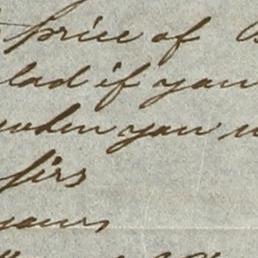 price of
lad if you
when you
firs
yours